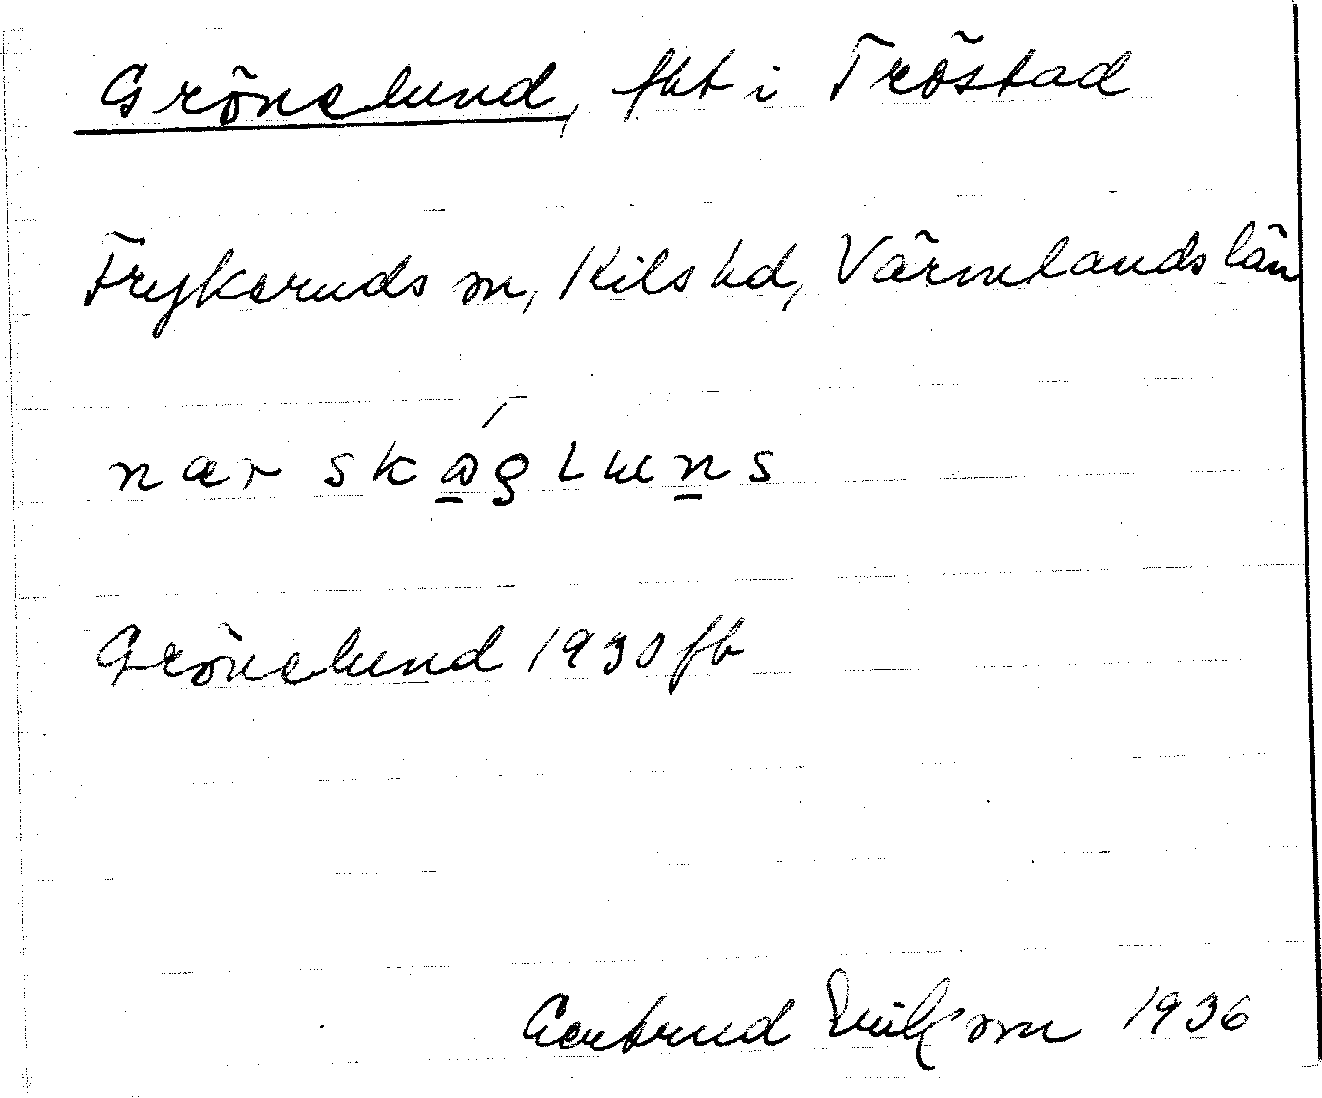 Grönelund, fht i Tröstad
Frykeruds sn, Kils hd, Värmlands län
nær skǫ́gLuns
Grönelund 1930 fb
Gertrud 1936